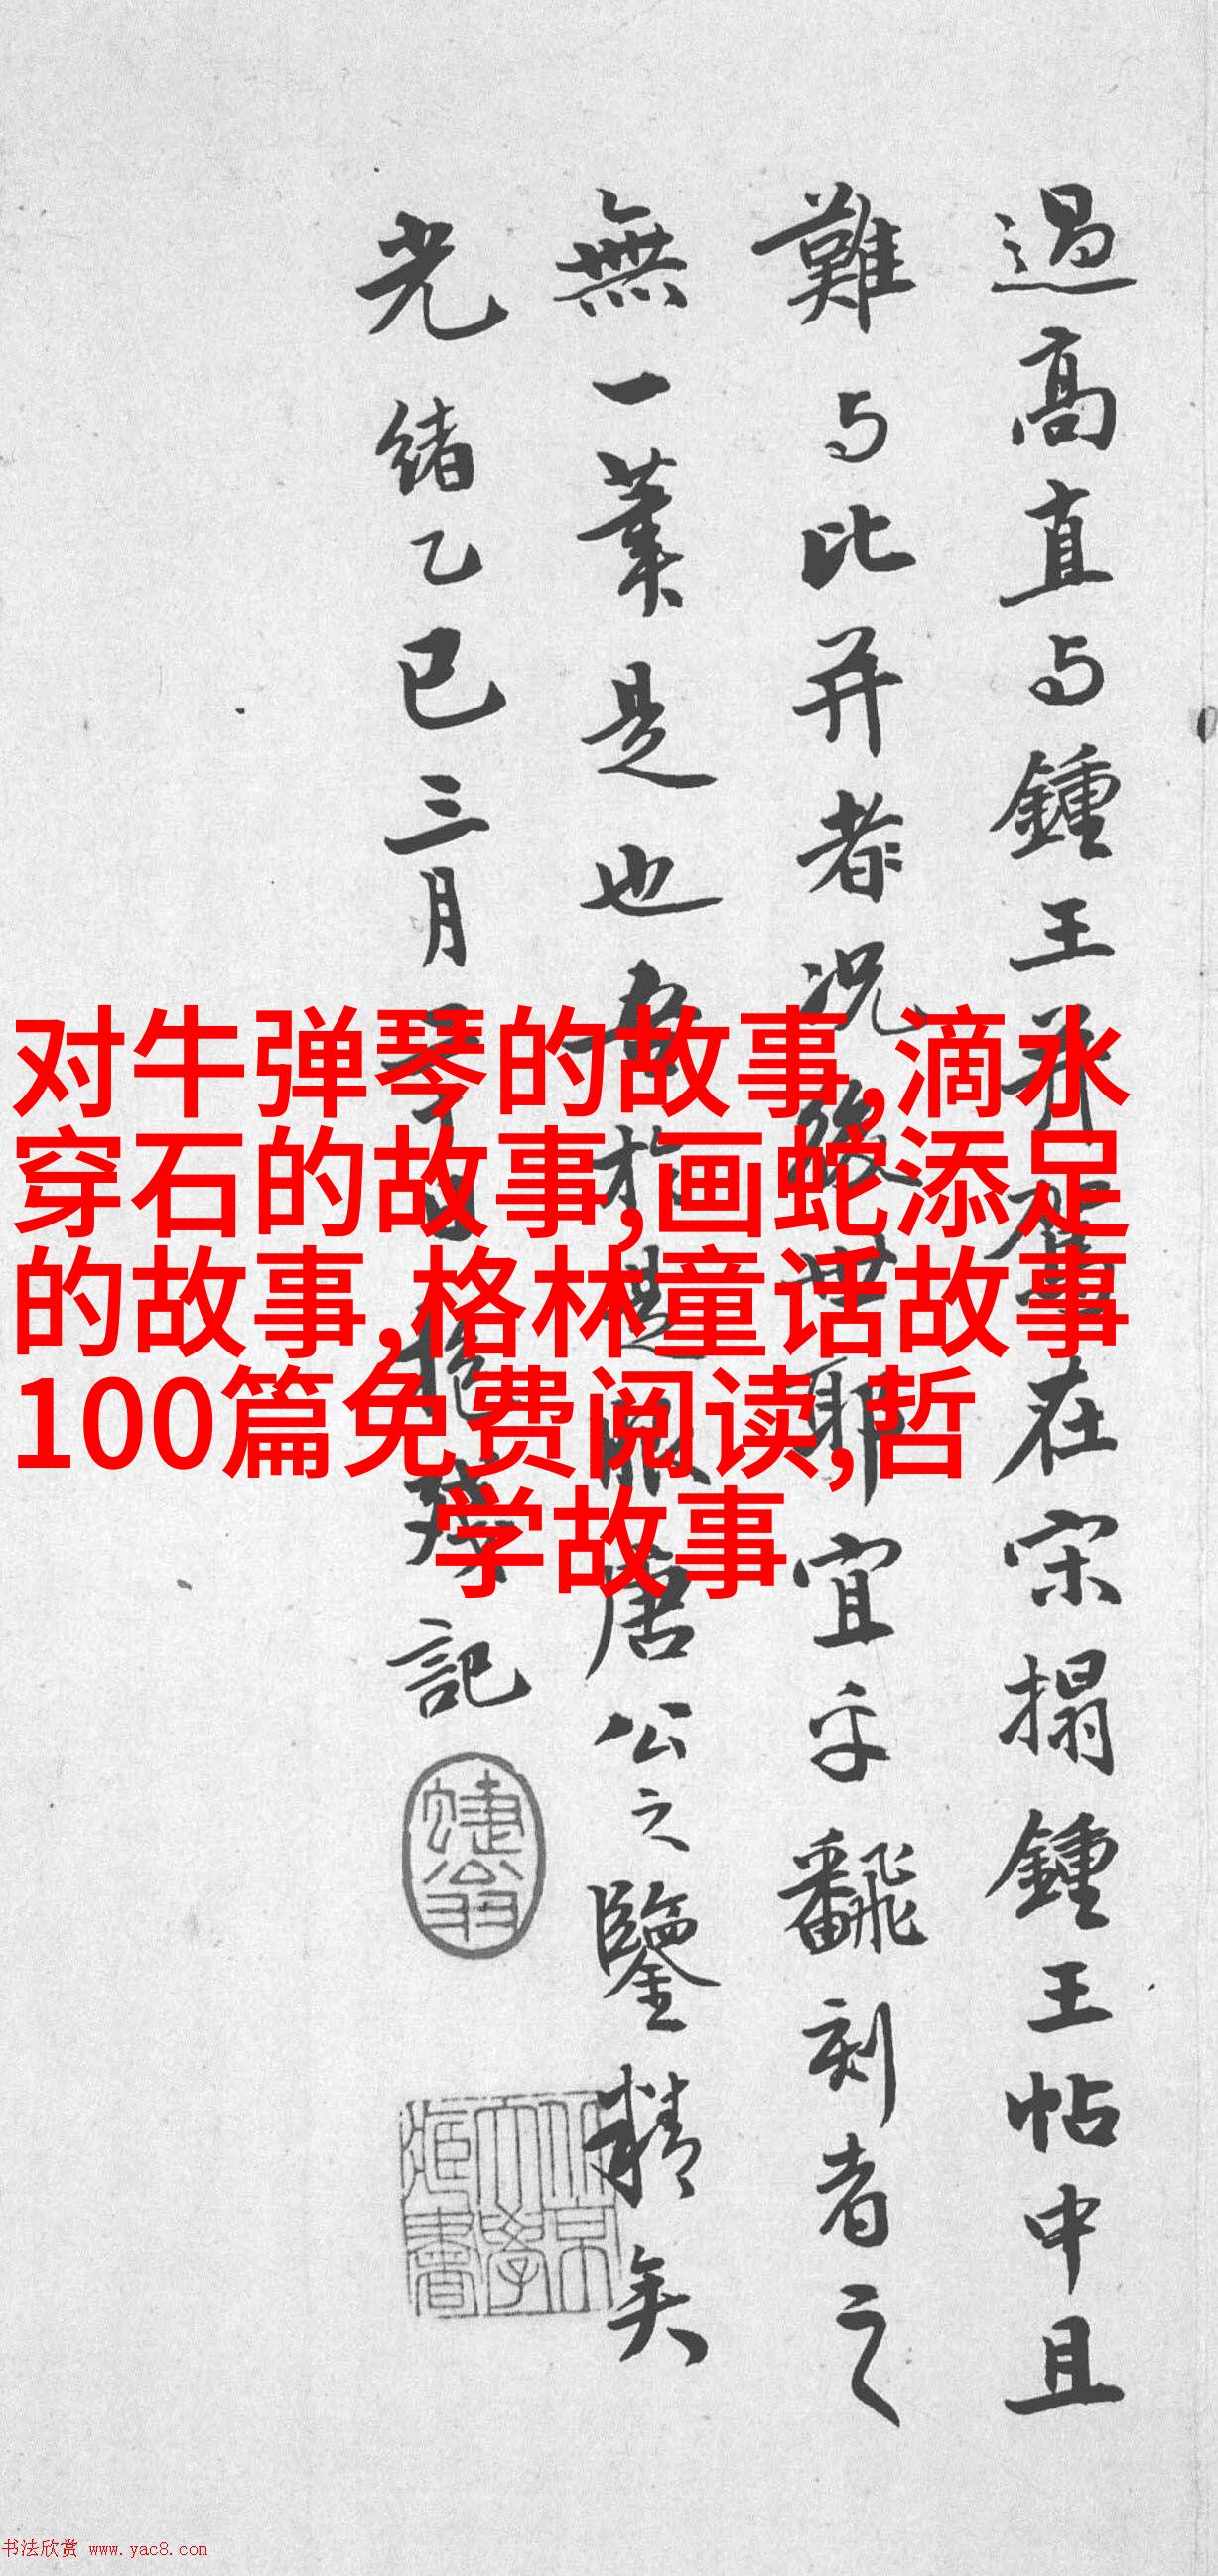 過高直与鍾王并在宋搨鍾王帖中且
難与比并者況後世耶宜乎翻刻者之
無一業是也吾於是服唐公之鑒精矣
光緒乙巳三月記
对牛弹琴的故事,滴水
穿石的故事,画蛇添足
的故事,格林童话故事
100篇免费阅读,哲
学故事
书法欣赏 www.yac8.com